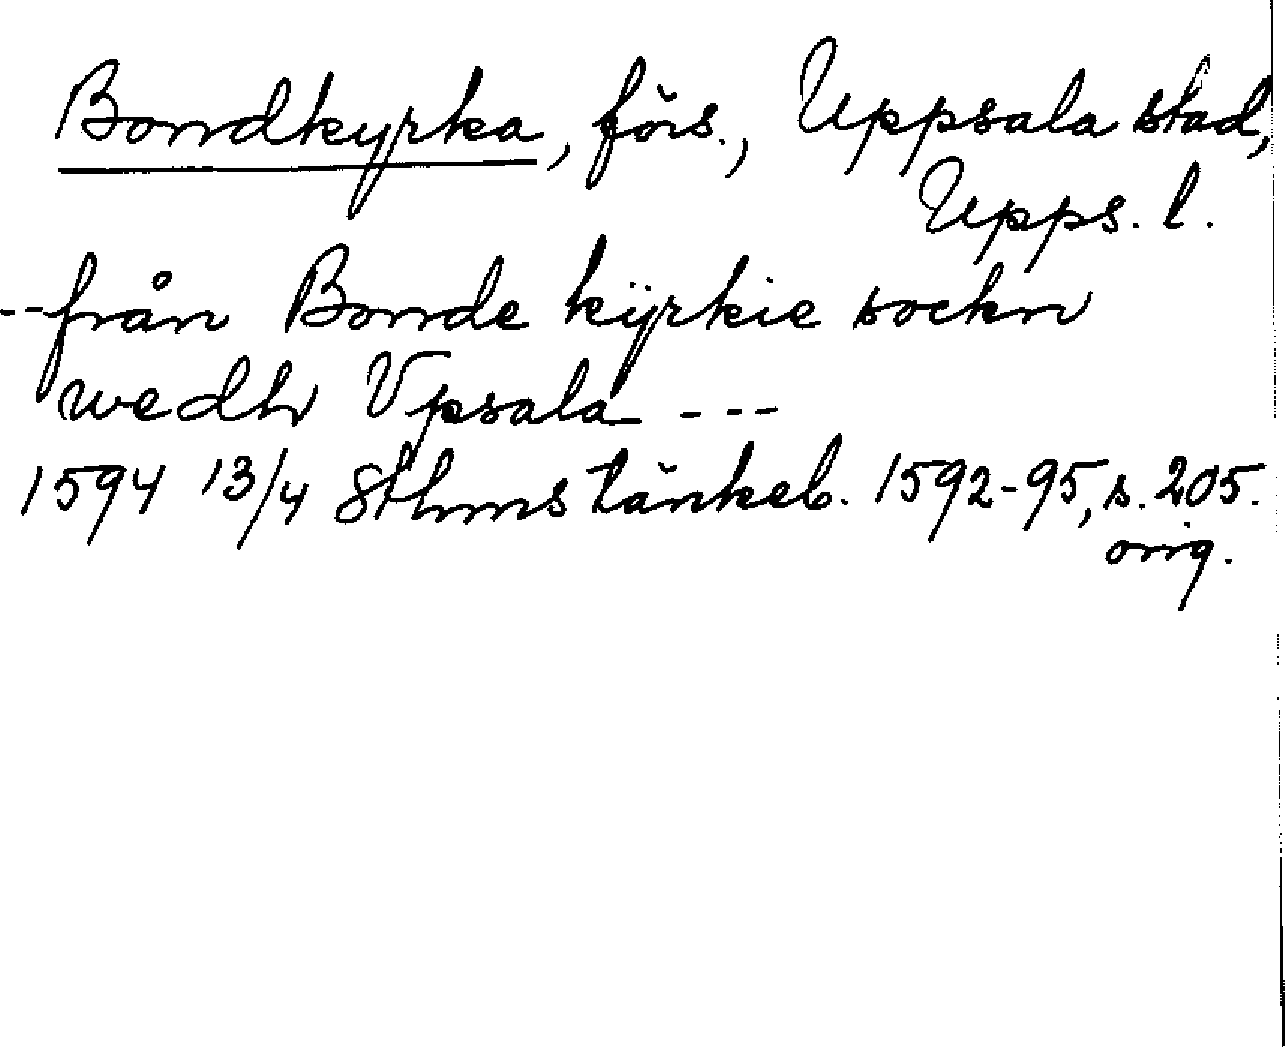 Bondkyrka, förs., Uppsala stad,
Upps. l.
-- från Bonde kÿrkie sockn
wedh Vpsala ---
1594 13/4 Sthms tänkeb. 1592-95, s. 205.
orig.